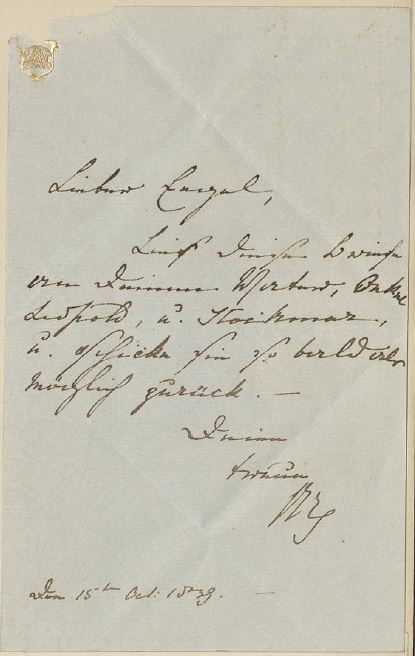 Lieber Engel,
Lies diese Briefe
an Deinen Vater, Onkel
Leopold, u. Stockmar,
u. schicke sie so bald als
möglich zurück. —
Deine
treue
VR
Den 15ten Oct: 1839. —